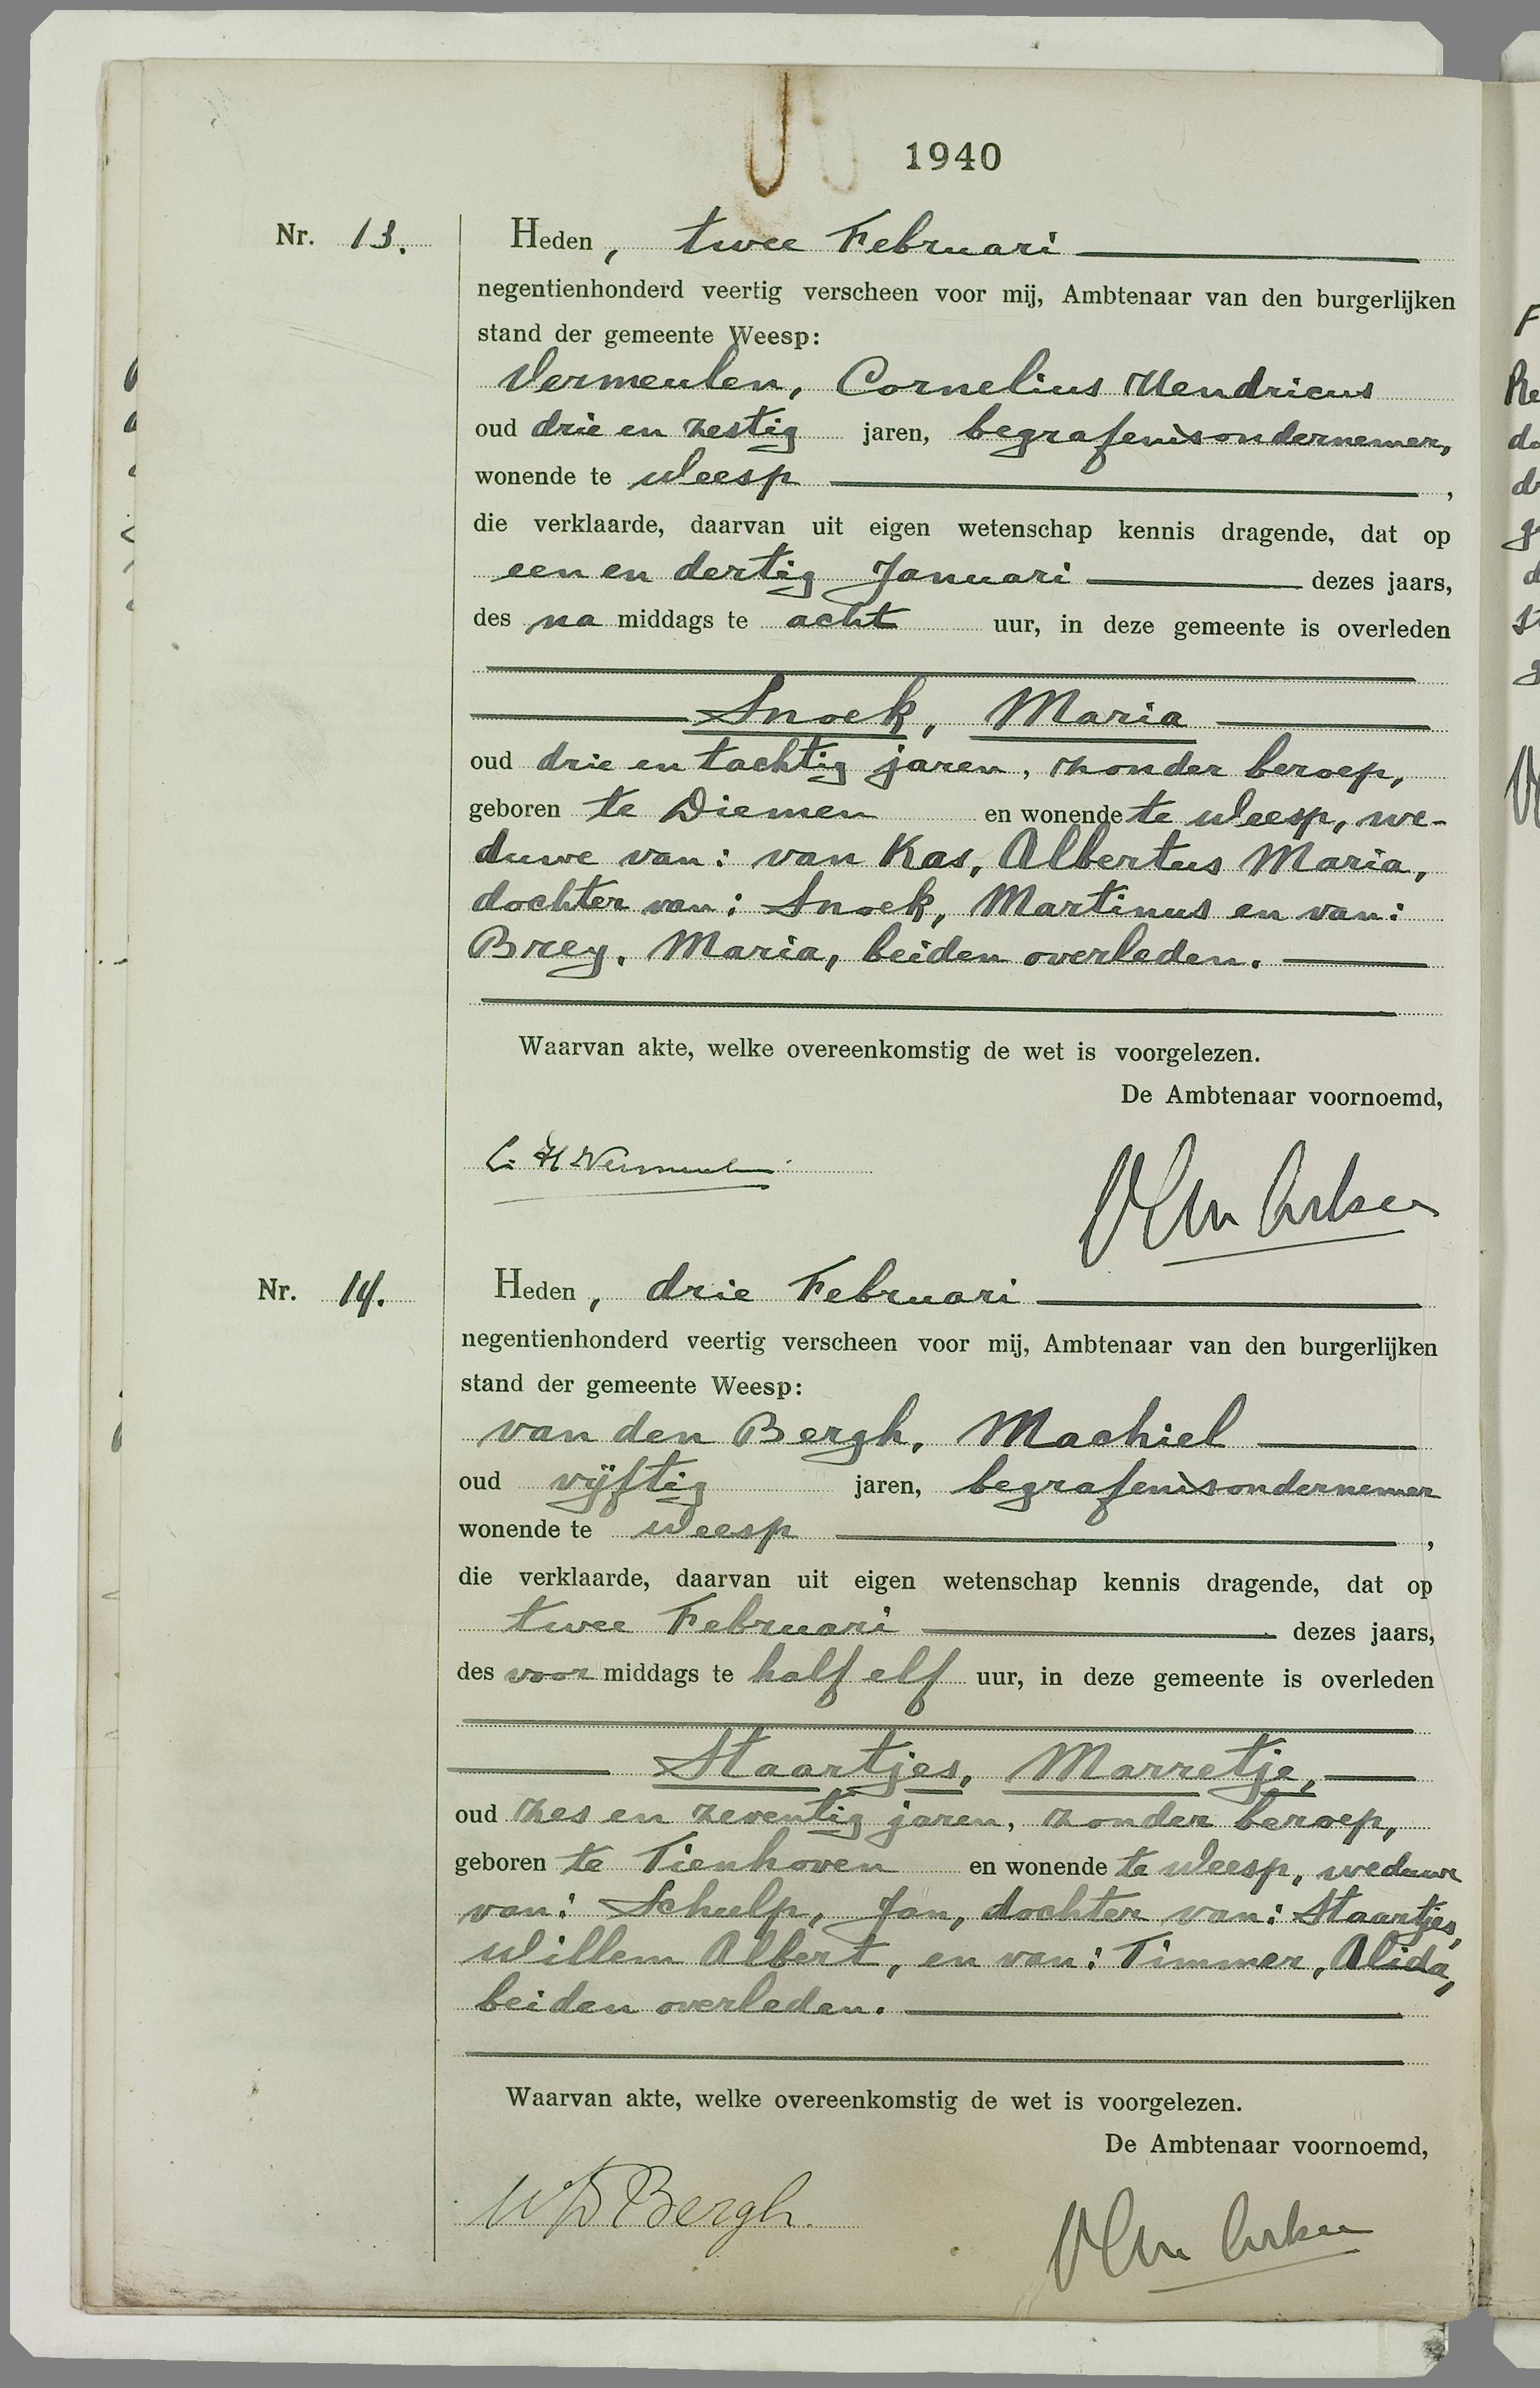 1940
Nr. 13.
Heden, twee Februari
negentienhonderd veertig verscheen voor mij, Ambtenaar van den burgerlijken
stand der gemeente Weesp:
Vermeulen, Cornelius Hendricus
oud drie en zestig jaren, begrafenisondernemer,
wonende te Weesp ,
die verklaarde, daarvan uit eigen wetenschap kennis dragende, dat op
een en dertig Januari dezes jaars,
des na middags te acht uur, in deze gemeente is overleden
Snoek, Maria
oud drie en tachtig jaren, zonder beroep,
geboren te Diemen en wonende te Weesp, we-
duwe van: van Kas, Albertus Maria,
dochter van: Snoek, Martinus en van:
Brey, Maria, beiden overleden.
Waarvan akte, welke overeenkomstig de wet is voorgelezen.
De Ambtenaar voornoemd,
C. H Vermeulen
Nr. 14.
Heden, drie Februari
negentienhonderd veertig verscheen voor mij, Ambtenaar van den burgerlijken
stand der gemeente Weesp:
van den Bergh, Machiel
oud vijftig jaren, begrafenisondernemer
wonende te Weesp ,
die verklaarde, daarvan uit eigen wetenschap kennis dragende, dat op
twee Februari dezes jaars,
des voor middags te half elf uur, in deze gemeente is overleden
Staartjes, Marretje,
oud zes en zeventig jaren, zonder beroep,
geboren te Tienhoven en wonende te Weesp, weduwe
van: Schulp, Jan, dochter van: Staartjes,
Willem Albert, en van: Timmer, Alida,
beiden overleden.
Waarvan akte, welke overeenkomstig de wet is voorgelezen.
De Ambtenaar voornoemd,
Bergh.